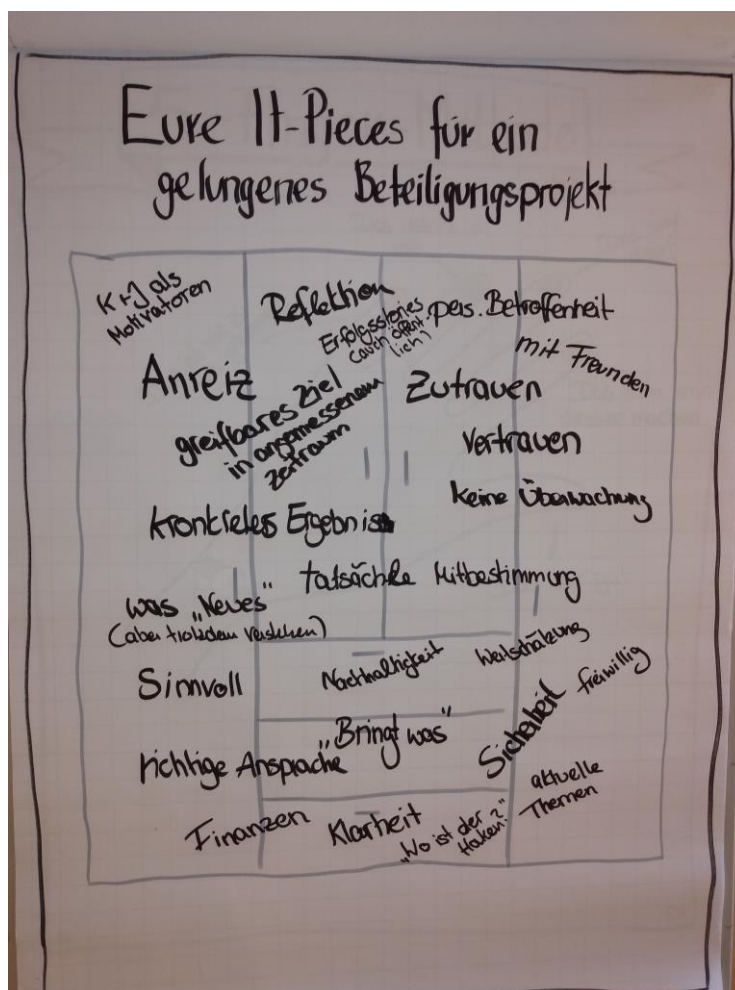 Eure It-Pieces für ein
gelungenes Beteiligungsprojekt
K+J als
Motivatoren
Reflektion
Erfolgsstories
(auch öffent-
lich)
pers. Betroffenheit
mit Freunden
Anreiz
greifbares Ziel
in angemessenem
Zeitraum
Zutrauen
Vertrauen
keine Überwachung
konkretes Ergebnis
tatsächliche Mitbestimmung
was „Neues"
(aber trotzdem verstehen)
Sinnvoll
Nachhaltigkeit
Wertschätzung
freiwillig
Sicherheit
„Bringt was"
richtige Ansprache
aktuelle
Themen
Finanzen
Klarheit
„Wo ist der
Haken?"